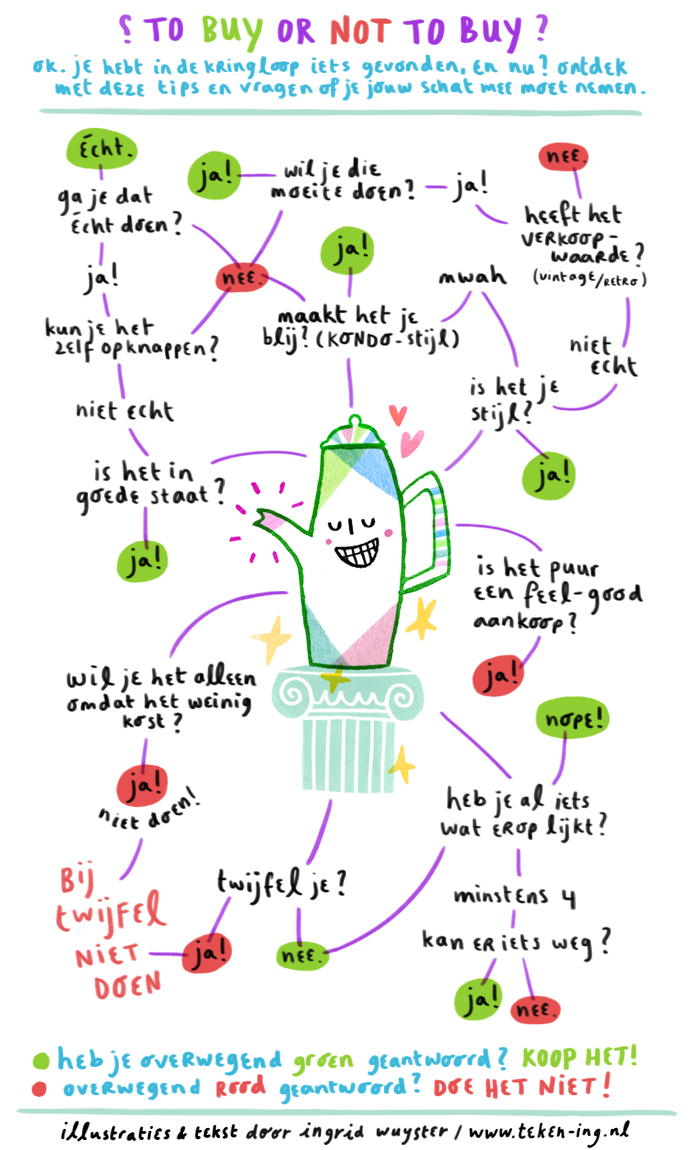 ¿ TO BUY OR NOT TO BUY?
ok. je hebt in de kringloop iets gevonden, en nu? ontdek
met deze tips en vragen of je jouw schat mee moet nemen.
Écht.
ga je dat
Écht doen?
ja!
kun je het
zelf opknappen?
niet echt
is het in
goede staat?
ja!
ja!
wil je die
moeite doen?
ja!
nee.
ja!
maakt het je
blij? (KONDO-stijl)
mwah
nee.
heeft het
verkoop-
waarde?
(vintage/retro)
niet
echt
is het je
stijl?
ja!
is het puur
een feel-good
aankoop?
ja!
wil je het alleen
omdat het weinig
kost?
ja!
niet doen!
Bij
twijfel
niet
doen
twijfel je?
ja!
nee.
nope!
heb je al iets
wat erop lijkt?
minstens 4
kan er iets weg?
ja!
nee.
heb je overwegend groen geantwoord? KOOP HET!
overwegend rood geantwoord? DOE HET NIET!
illustraties & tekst door ingrid wuyster / www.teken-ing.nl